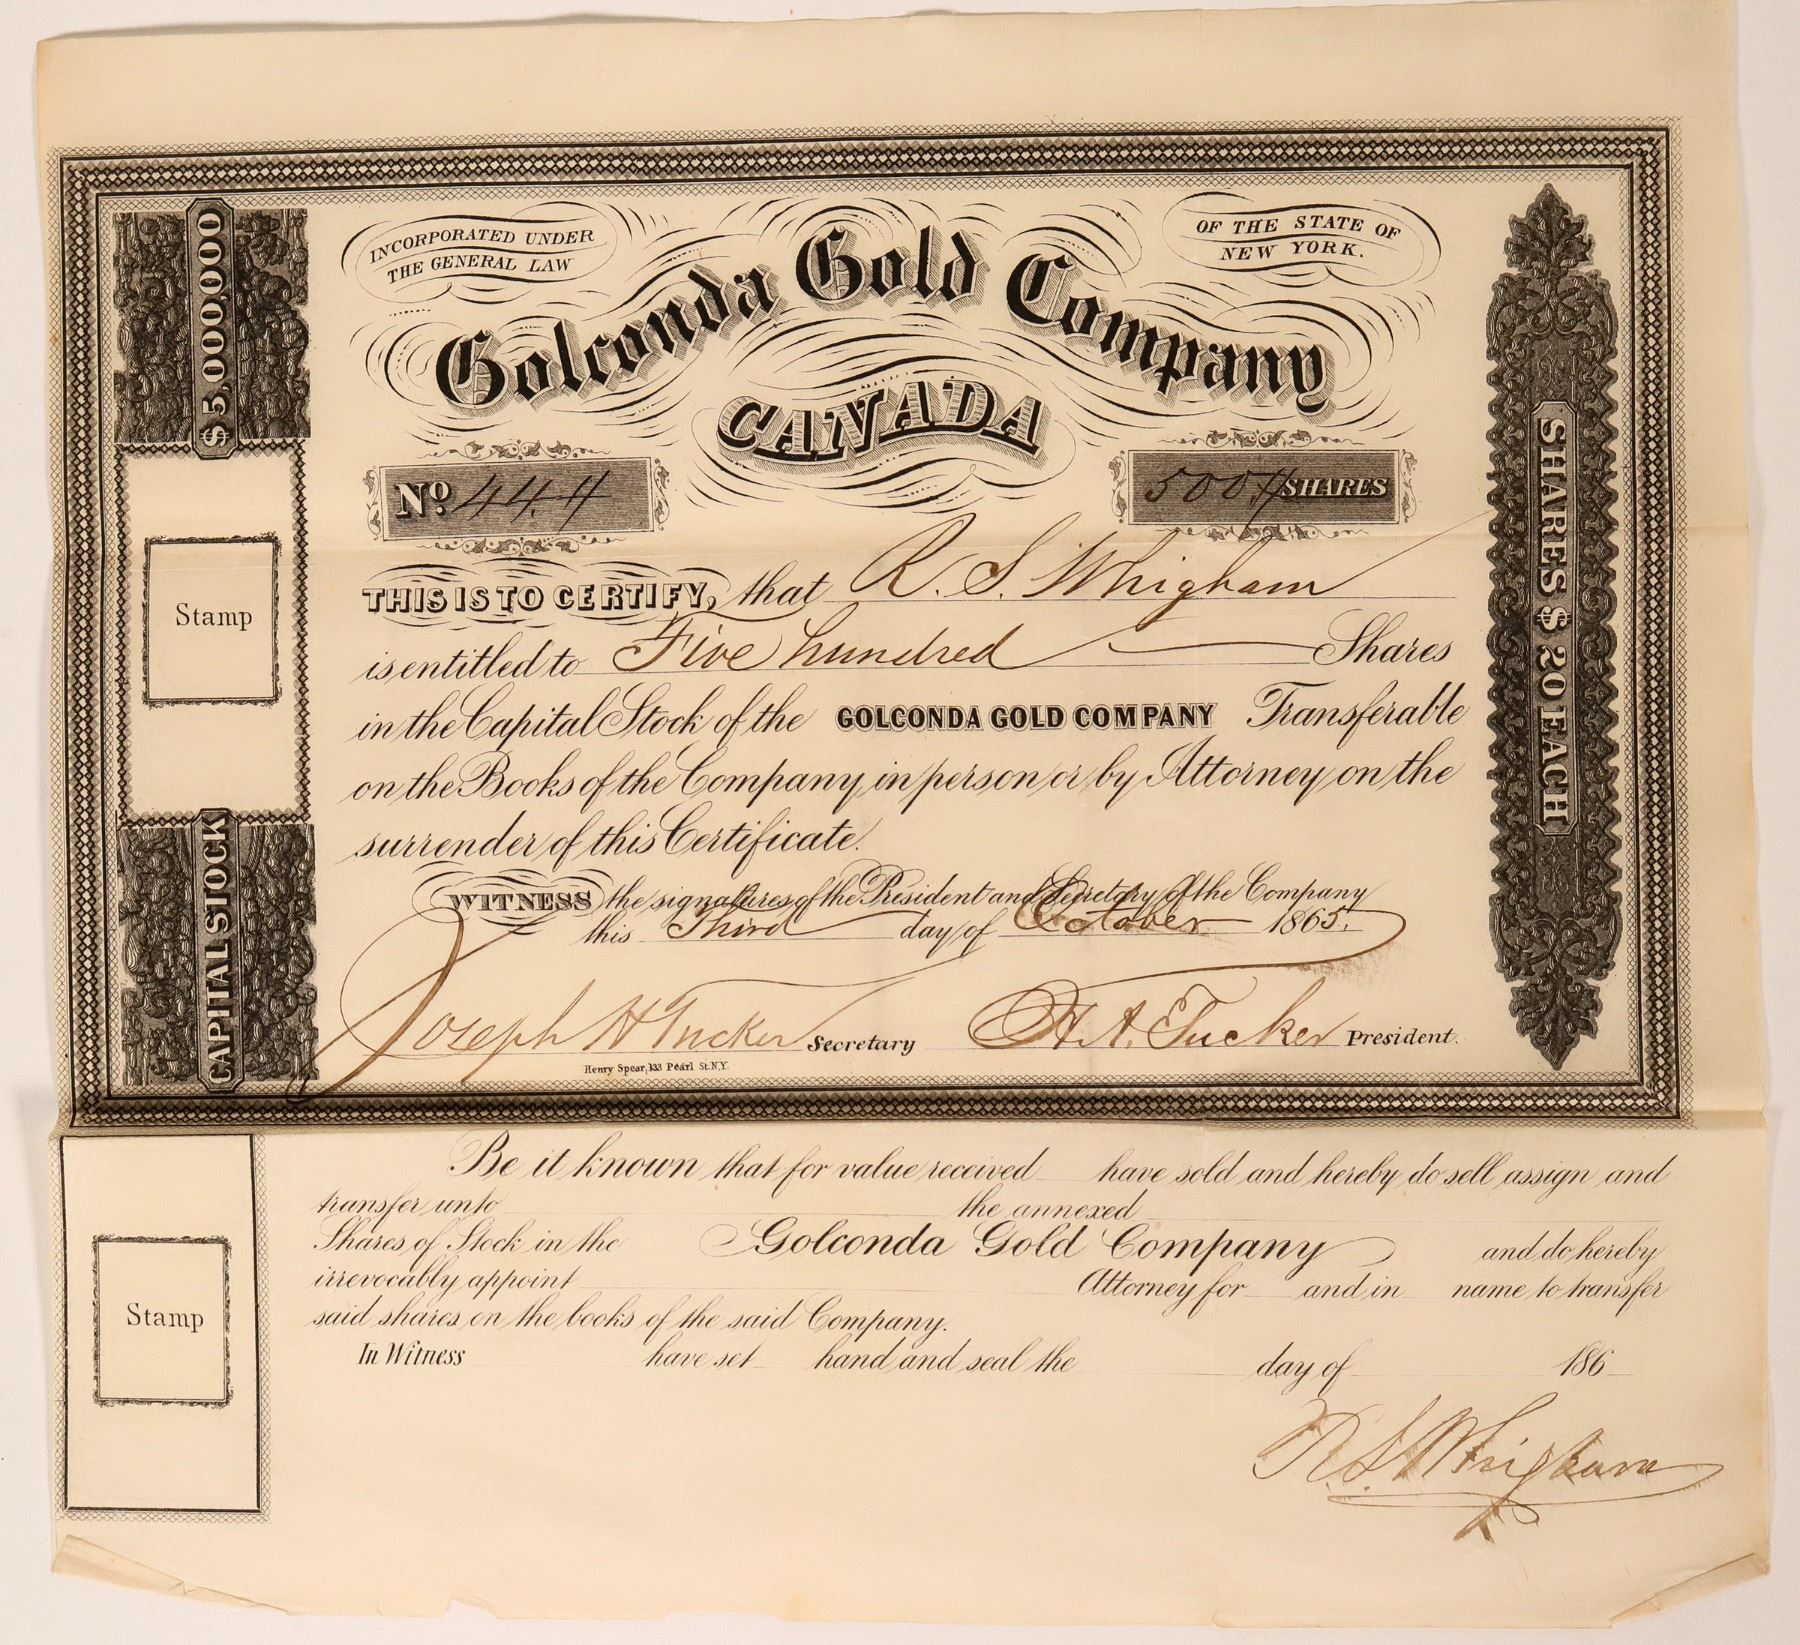 INCORPORATED UNDER
THE GENERAL LAW
OF THE STATE OF
NEW YORK.
Golconda Gold Company
CANADA
$5,000,000
CAPITAL STOCK
Stamp
SHARES $20 EACH
No. 44
500 SHARES
THIS IS TO CERTIFY, that R. S. Whigham
is entitled to Five hundred Shares
in the Capital Stock of the GOLCONDA GOLD COMPANY Transferable
on the Books of the Company in person or by Attorney on the
surrender of this Certificate.
WITNESS the signatures of the President and Secretary of the Company
this Third day of October 1865.
Joseph H Tucker Secretary H. A. Tucker President.
Henry Spear, 133 Pearl St. N.Y.
Be it known that for value received have sold and hereby do sell assign and
transfer unto the annexed
Shares of Stock in the Golconda Gold Company and do hereby
irrevocably appoint Attorney for and in name to transfer
said shares on the books of the said Company.
In Witness have set hand and seal the day of 186
Stamp
R. S. Whigham